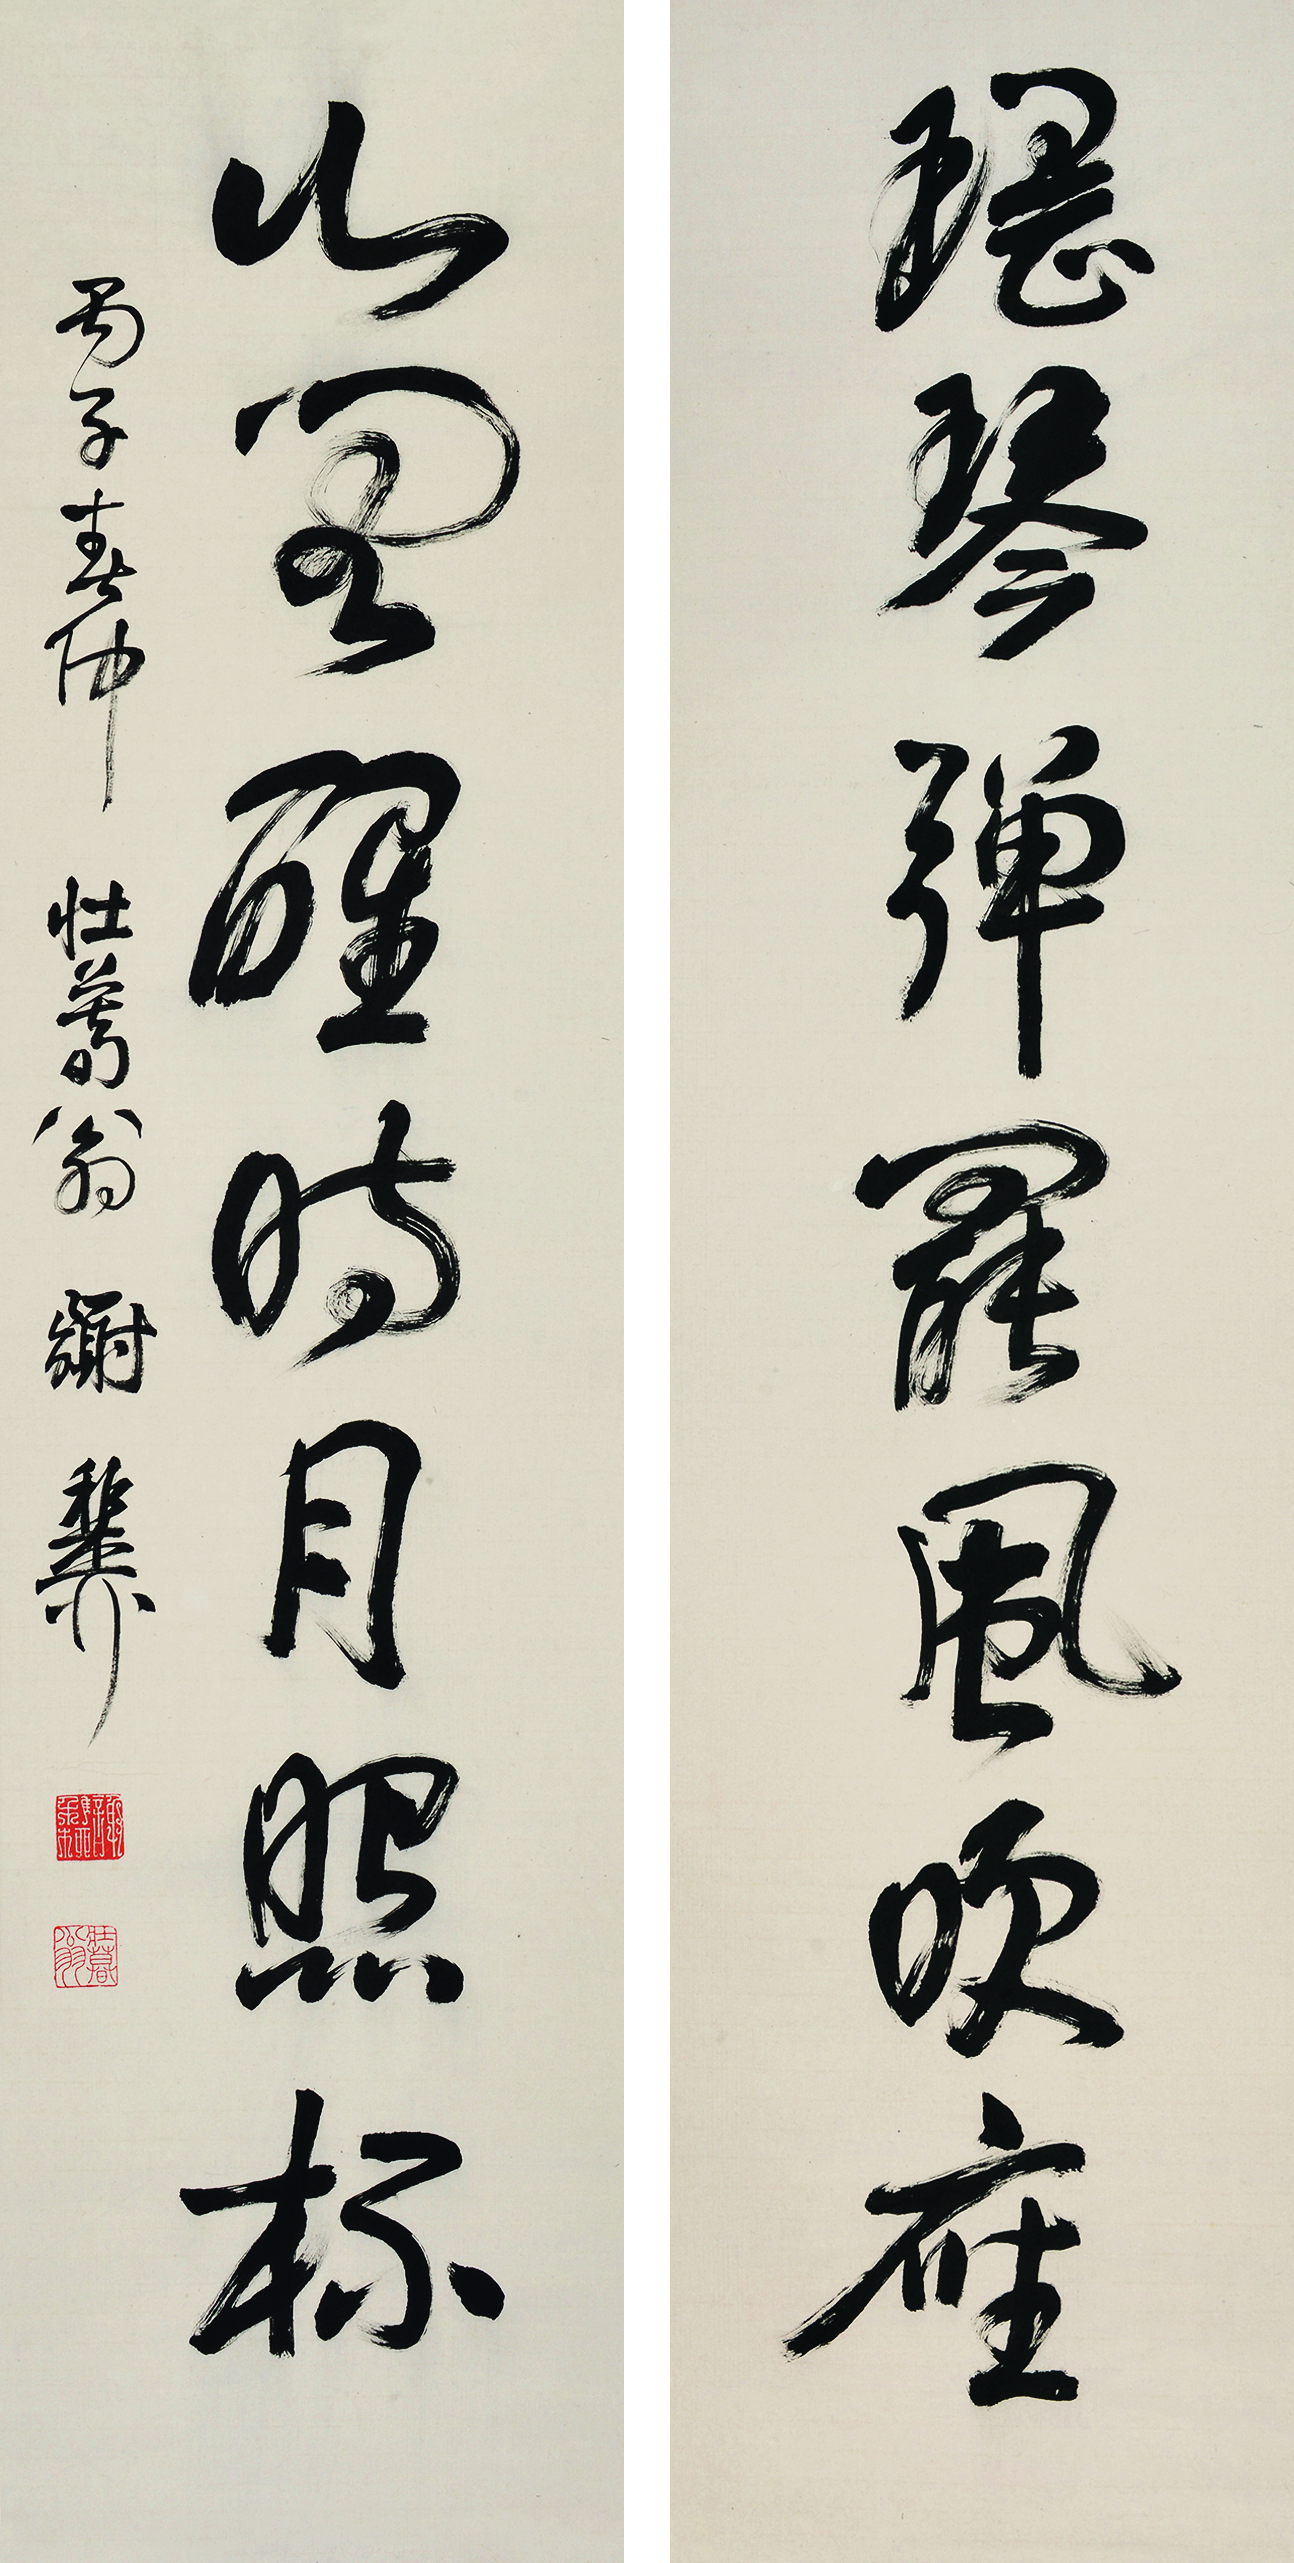 瑤琴彈罷風吹座
山閣醒時月照杯
丙子春仲 壯暮翁 謝稚柳
壯暮翁